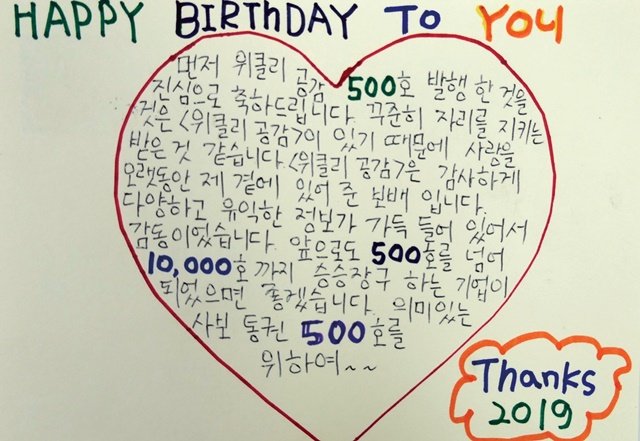 HAPPY BIRTHDAY TO YOU
먼저 위클리 공감 500호 발행 한 것을
진심으로 축하드립니다. 꾸준히 자리를 지키는
것은 <위클리 공감>이 있기 때문에 사랑을
받은 것 같습니다. <위클리 공감>은 감사하게
오랫동안 제 곁에 있어 준 보배 입니다.
다양하고 유익한 정보가 가득 들어 있어서
감동이었습니다. 앞으로도 500호를 넘어
10,000호 까지 승승장구 하는 기업이
되었으면 좋겠습니다. 의미있는
사보 통권 500호를
위하여~~
Thanks
2019